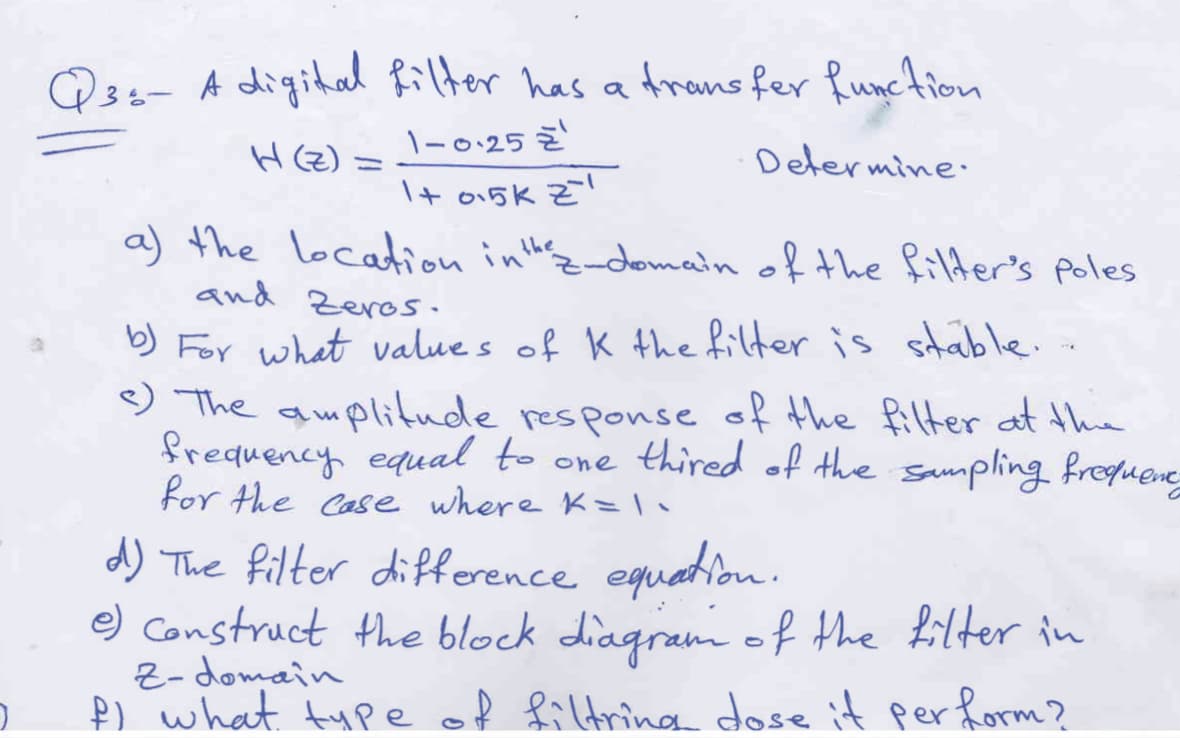 Q3:- A digital filter has a transfer function
H(z) = (1-0.25 z⁻¹)/(1+ 0.5K z⁻¹) Determine.
a) the location in the z-domain of the filter's poles
and zeros.
b) For what values of K the filter is stable.
c) The amplitude response of the filter at the
frequency equal to one thired of the sampling frequency
for the case where K=1.
d) The filter difference equation.
e) construct the block diagram of the filter in
z-domain
f) what type of filtring dose it perform?